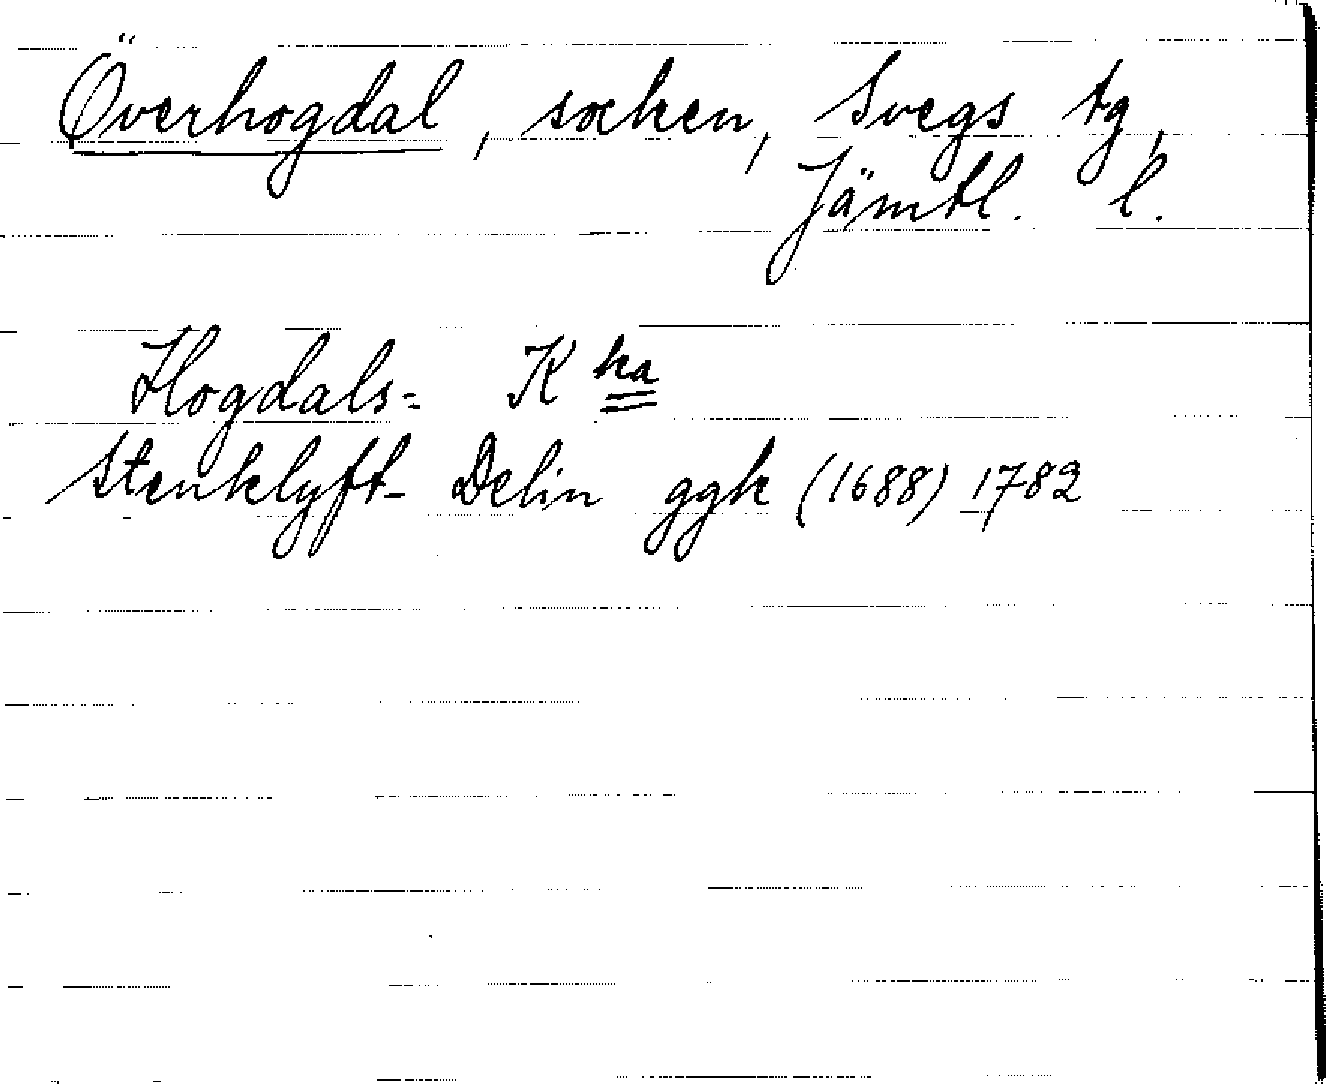 Överhogdal, socken, Svegs tg,
Jämtl. l.
Hogdals= K ka
Stenklyft- Delin ggk (1688) 1782